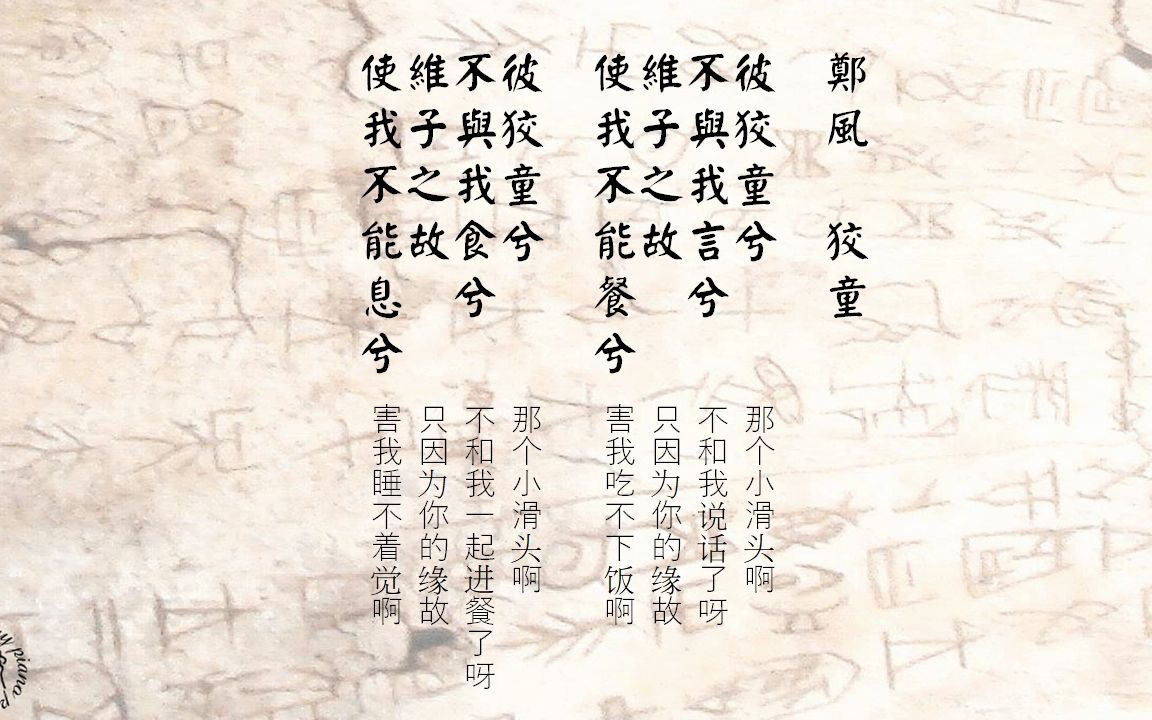 鄭風　狡童
彼狡童兮
不與我言兮
維子之故
使我不能餐兮
那个小滑头啊
不和我说话了呀
只因为你的缘故
害我吃不下饭啊
彼狡童兮
不與我食兮
維子之故
使我不能息兮
那个小滑头啊
不和我一起进餐了呀
只因为你的缘故
害我睡不着觉啊
piano